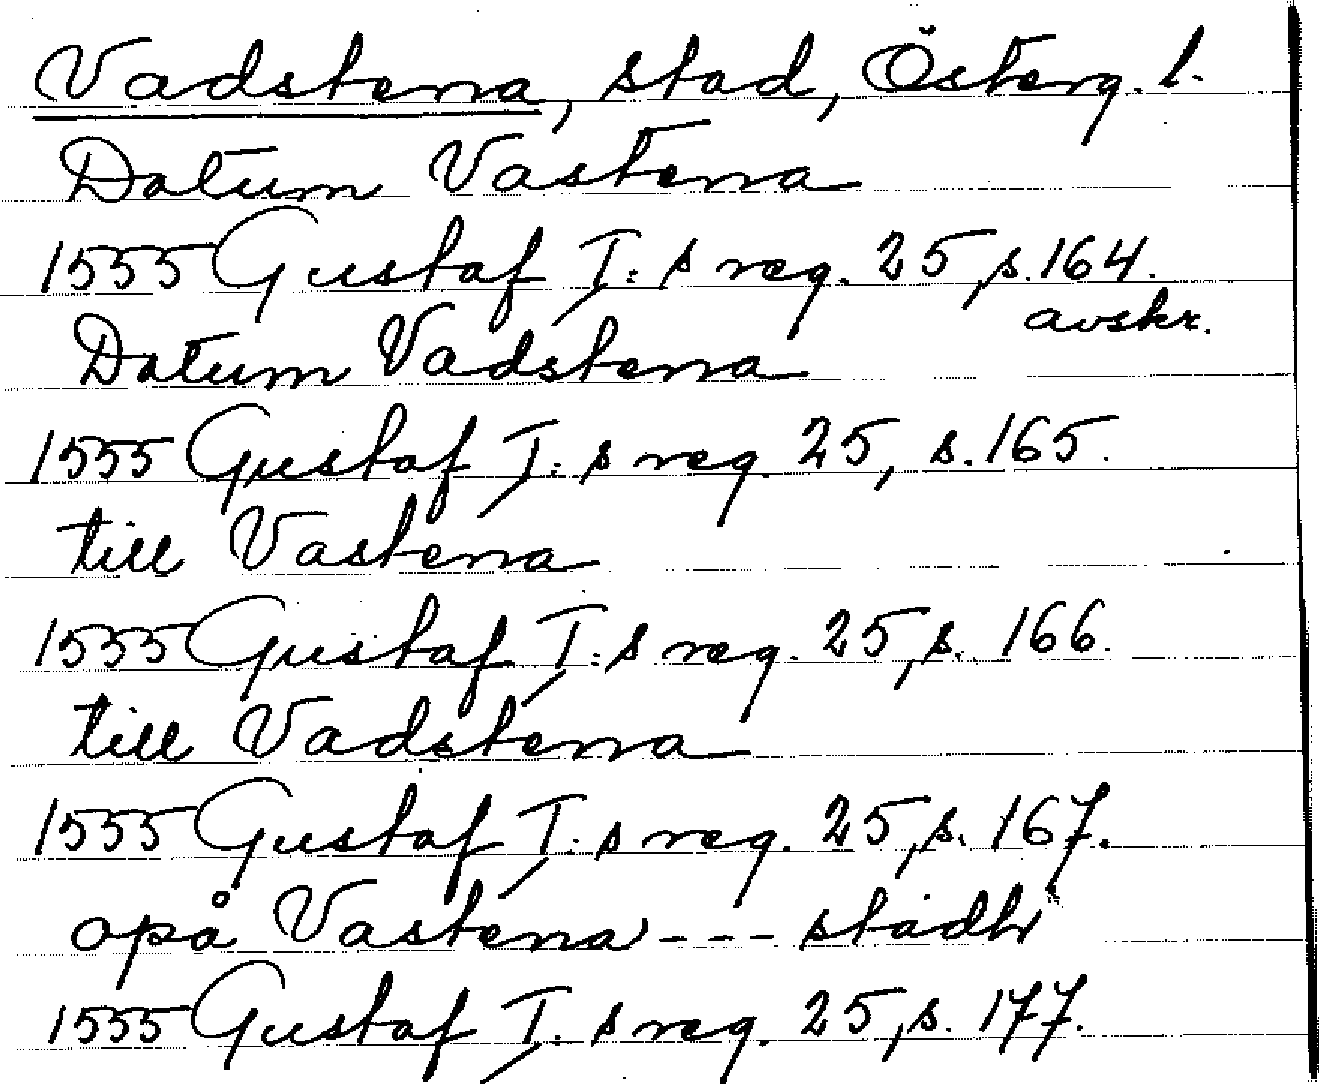 Vadstena, stad, Österg. l.
Datum Vastena
1555 Gustaf I:s reg. 25, s. 164.
avskr.
Datum Vadstena
1555 Gustaf I:s reg. 25, s. 165.
till Vastena
1555 Gustaf I:s reg. 25, s. 166.
till Vadstena
1555 Gustaf I:s reg. 25, s. 167.
opå Vastena --- stadh
1555 Gustaf I:s reg. 25, s. 177.